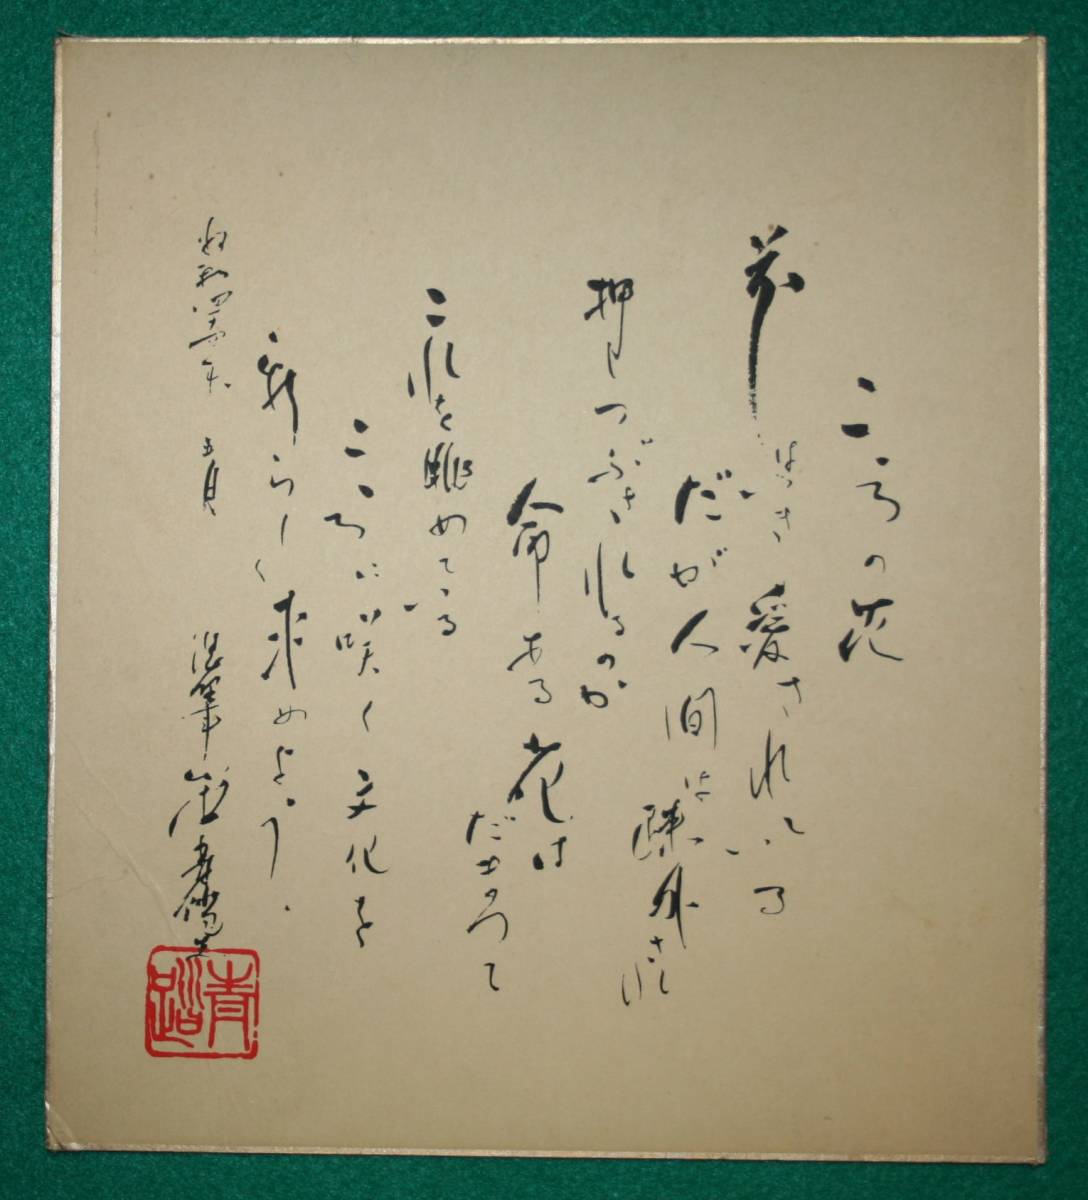 こゝろの花
愛されている
だが人間は疎外され
押しつぶされるのか
命ある花は
だまって
これを眺めている
こゝろに咲く文化を
新らしく求めよう。
昭和四十四年 五月